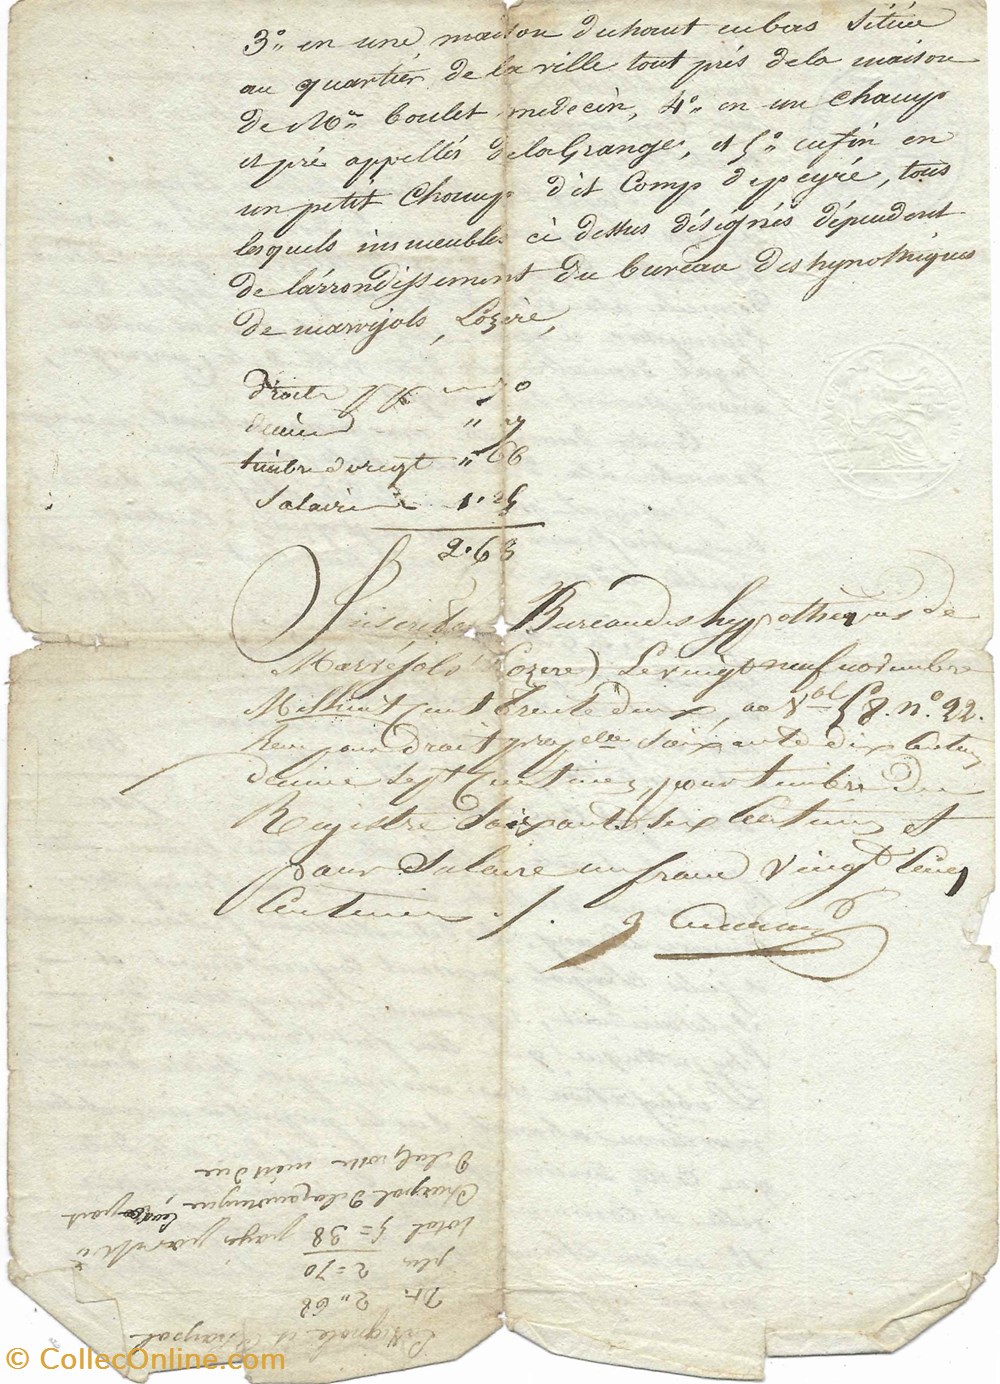 3.° en une maison du haut en bas Située
au quartier de la ville tout prés de la maison
de Mr. boulet medecin, 4.° en un champ
et pré appellés delaGrange, et 5.° enfin en
un petit Champ dit Camp depeyré, tous
lesquels immeubles ci dessus désignés dépendent
de l'arrondissement du bureau des hypothéques
de marvejols, Lozère,
droits 70
décime " 7
timbre du regt " 66
Salaire 1.25
2.68
Inscrit au Bureau des hypothèques de
Marvejols (Lozere) Le vingt neuf novembre
Mil huit cent trente deux, no 22.
Reçu pour droit propel Soixante dix Centimes
décime sept Centimes, pour timbre du
Registre Soixante six Centimes et
pour Salaire un franc Vingt Cinq
Centimes ./.
et Charpal
Dt. 2 " 68
plus 2 = 70
total 5 = 38 payé par
Charpal